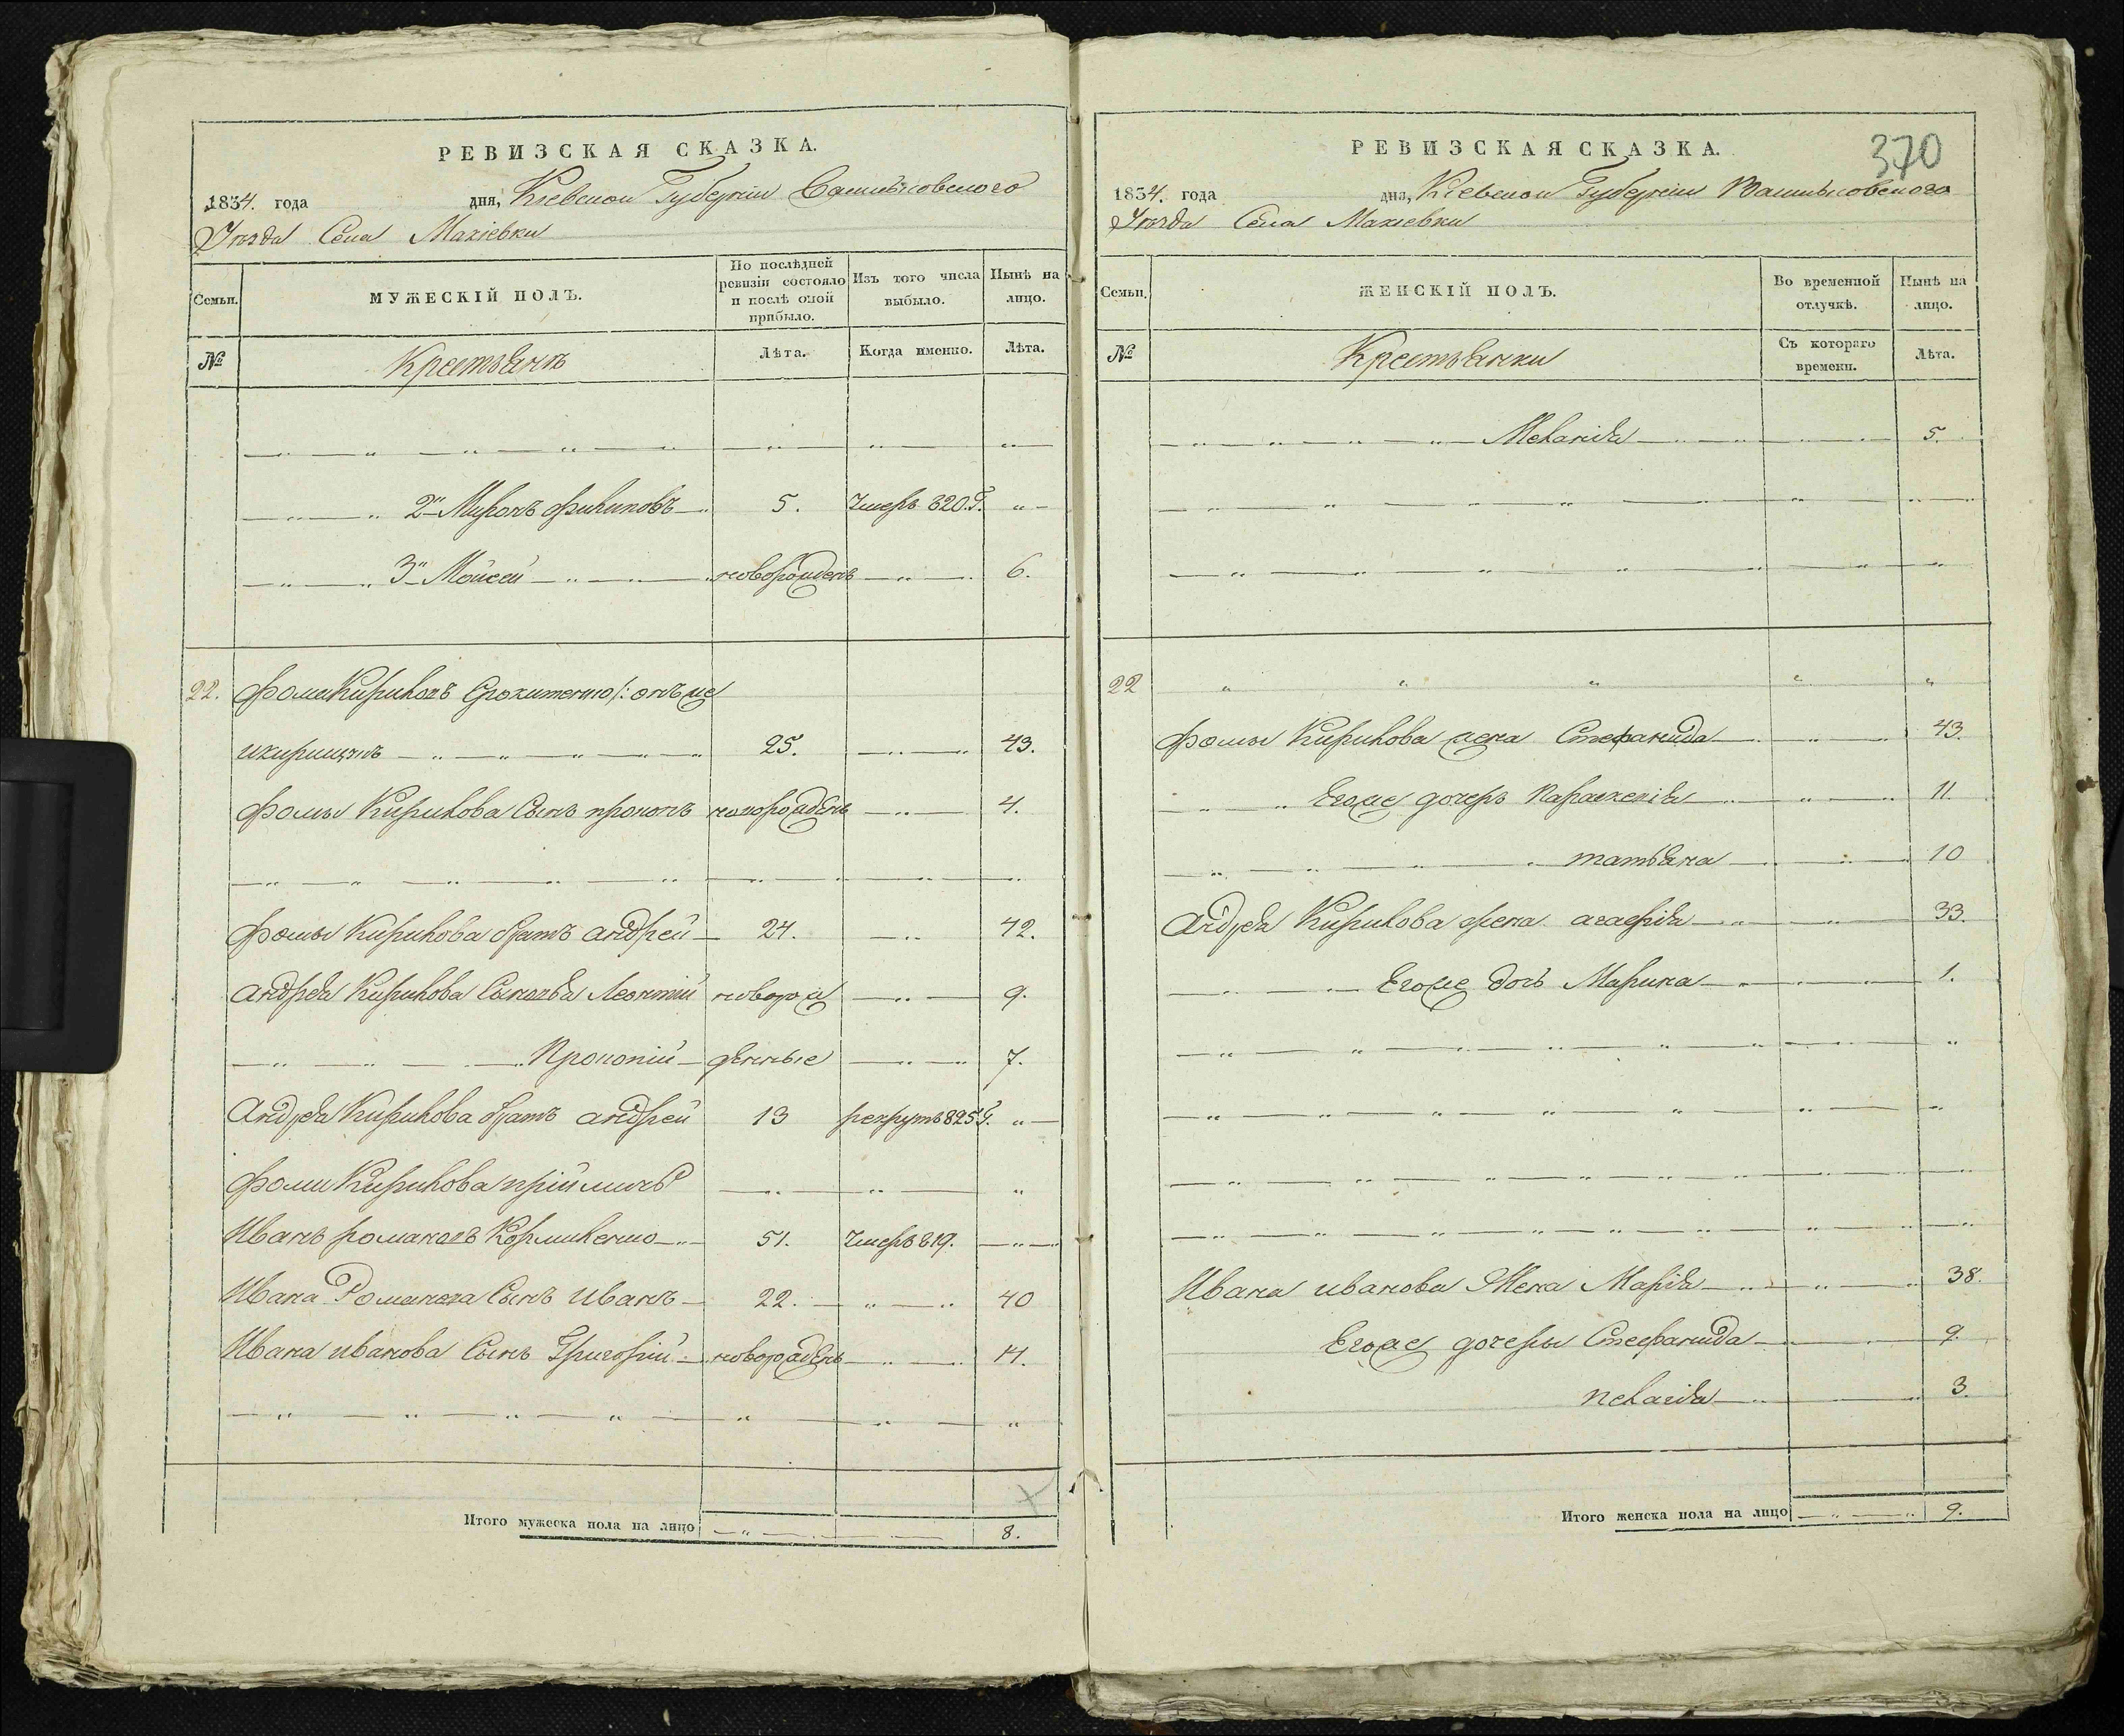 РЕВИЗСКАЯ СКАЗКА.
1834. года дня, Кіевской Губерніи Васильковского
Уезда Села Махіевки
Семьи. МУЖЕСКІЙ ПОЛЪ. По послѣдней ревизіи состояло и послѣ оной прибыло. Изъ того числа выбыло. Нынѣ на лицо.
№ Крестьянъ Лѣта. Когда именно. Лѣта.
2й Миронъ Филиповъ 5. Умеръ 820. Г.
3й Мойсей новорожденъ 6.
22. Фома Кириловъ онъ же
25. 43.
Фомы Кирилова Сынъ прокопъ новорожденъ 4.
Фомы Кирилова братъ андрей 24. 42.
Андрея Кирилова Сыновья Леонтій новорож 9.
Прокопій денные 7.
Андрея Кирилова братъ андрей 13 рекрутъ 825 Г.
Фомы Кирилова пріймичь
Иванъ романовъ Кормиленко 51. Умеръ 819.
Ивана Романова Сынъ Иванъ 22. 40
Ивана иванова Сынъ Григорій новорожденъ 14.
Итого мужеска пола на лицо 8.
РЕВИЗСКАЯ СКАЗКА. 370
1834. года дня, Кіевской Губерніи Васильковского
Уезда Села Махіевки
Семьи. ЖЕНСКІЙ ПОЛЪ. Во временной отлучкѣ. Нынѣ на лицо.
№ Крестьянки Съ котораго времени. Лѣта.
Меланія 5.
22
Фомы Кирилова жена Стефанида 43.
Егоже дочерь Параскевія 11.
татьяна 10
Андрея Кирилова жена агафія 33.
Егоже дочь Марина 1.
Ивана иванова Жена Марія 38.
Егоже дочеры Стефанида 9.
пелагія 3.
Итого женска пола на лицо 9.